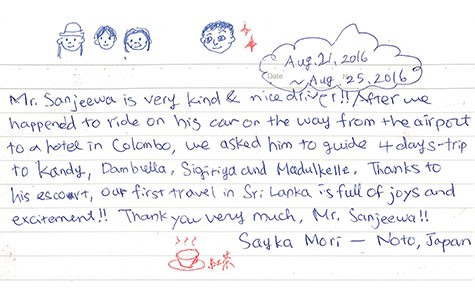 Aug. 21, 2016
Date
~ Aug. 25, 2016
Mr. Sanjeewa is very kind & nice driver!! After we
happened to ride on his car on the way from the airport
to a hotel in Colombo, we asked him to guide 4 days-trip
to Kandy, Dambulla, Sigiriya and Madulkelle. Thanks to
his escourt, our first travel in Sri Lanka is full of joys and
excitement!! Thank you very much, Mr. Sanjeewa!!
Sayka Mori — Noto, Japan
紅茶